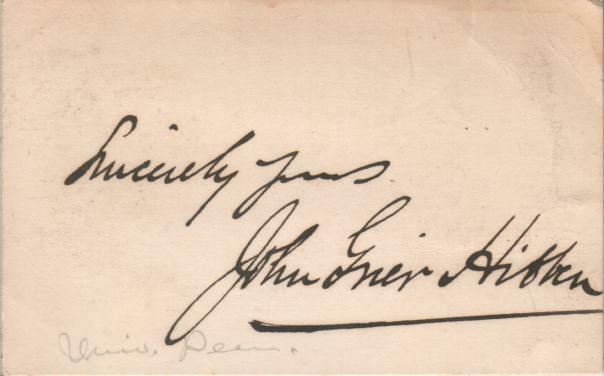 Sincerely yours
John Grier Hibben
Univ. Penn.